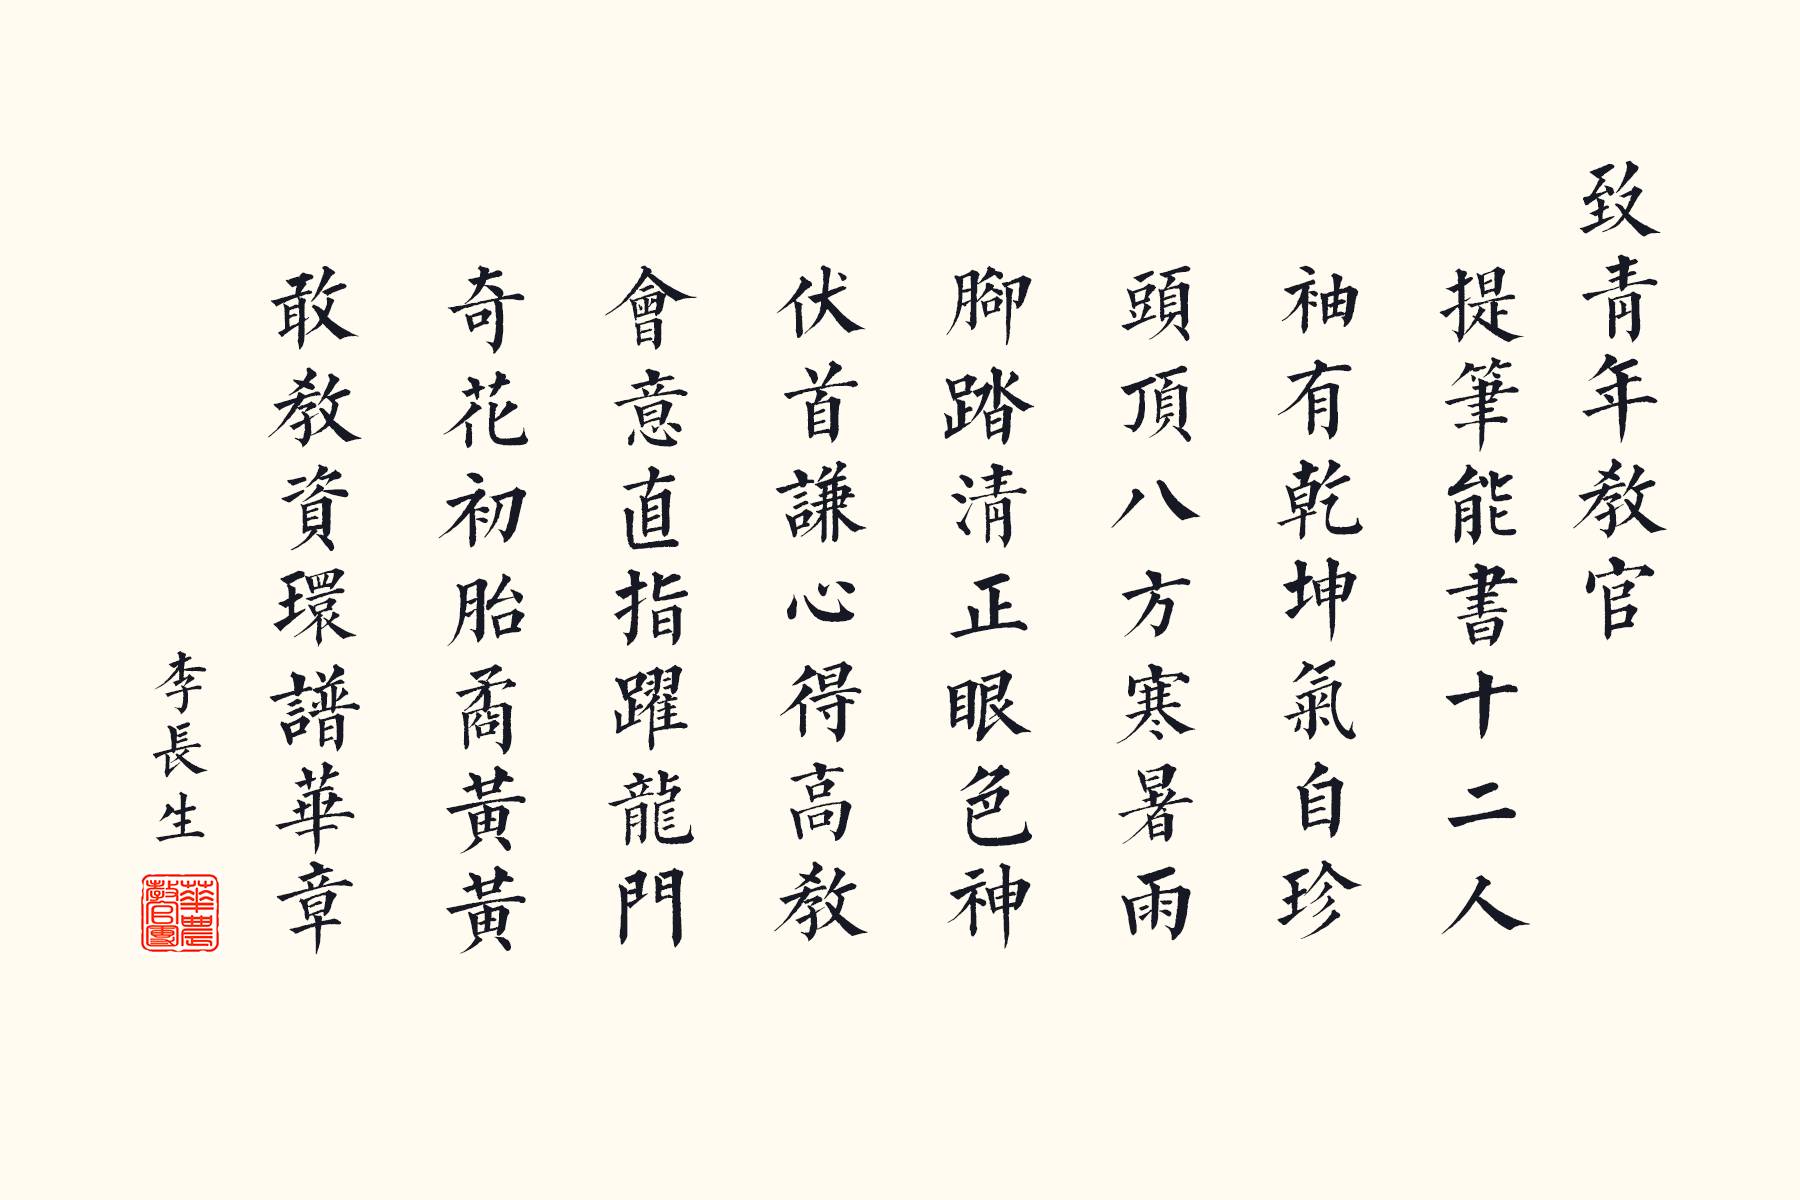 致青年教官
提筆能書十二人
袖有乾坤氣自珍
頭頂八方寒暑雨
腳踏清正眼色神
伏首謙心得高教
會意直指躍龍門
奇花初胎矞黃黃
敢教資環譜華章
李長生
華農
教官團